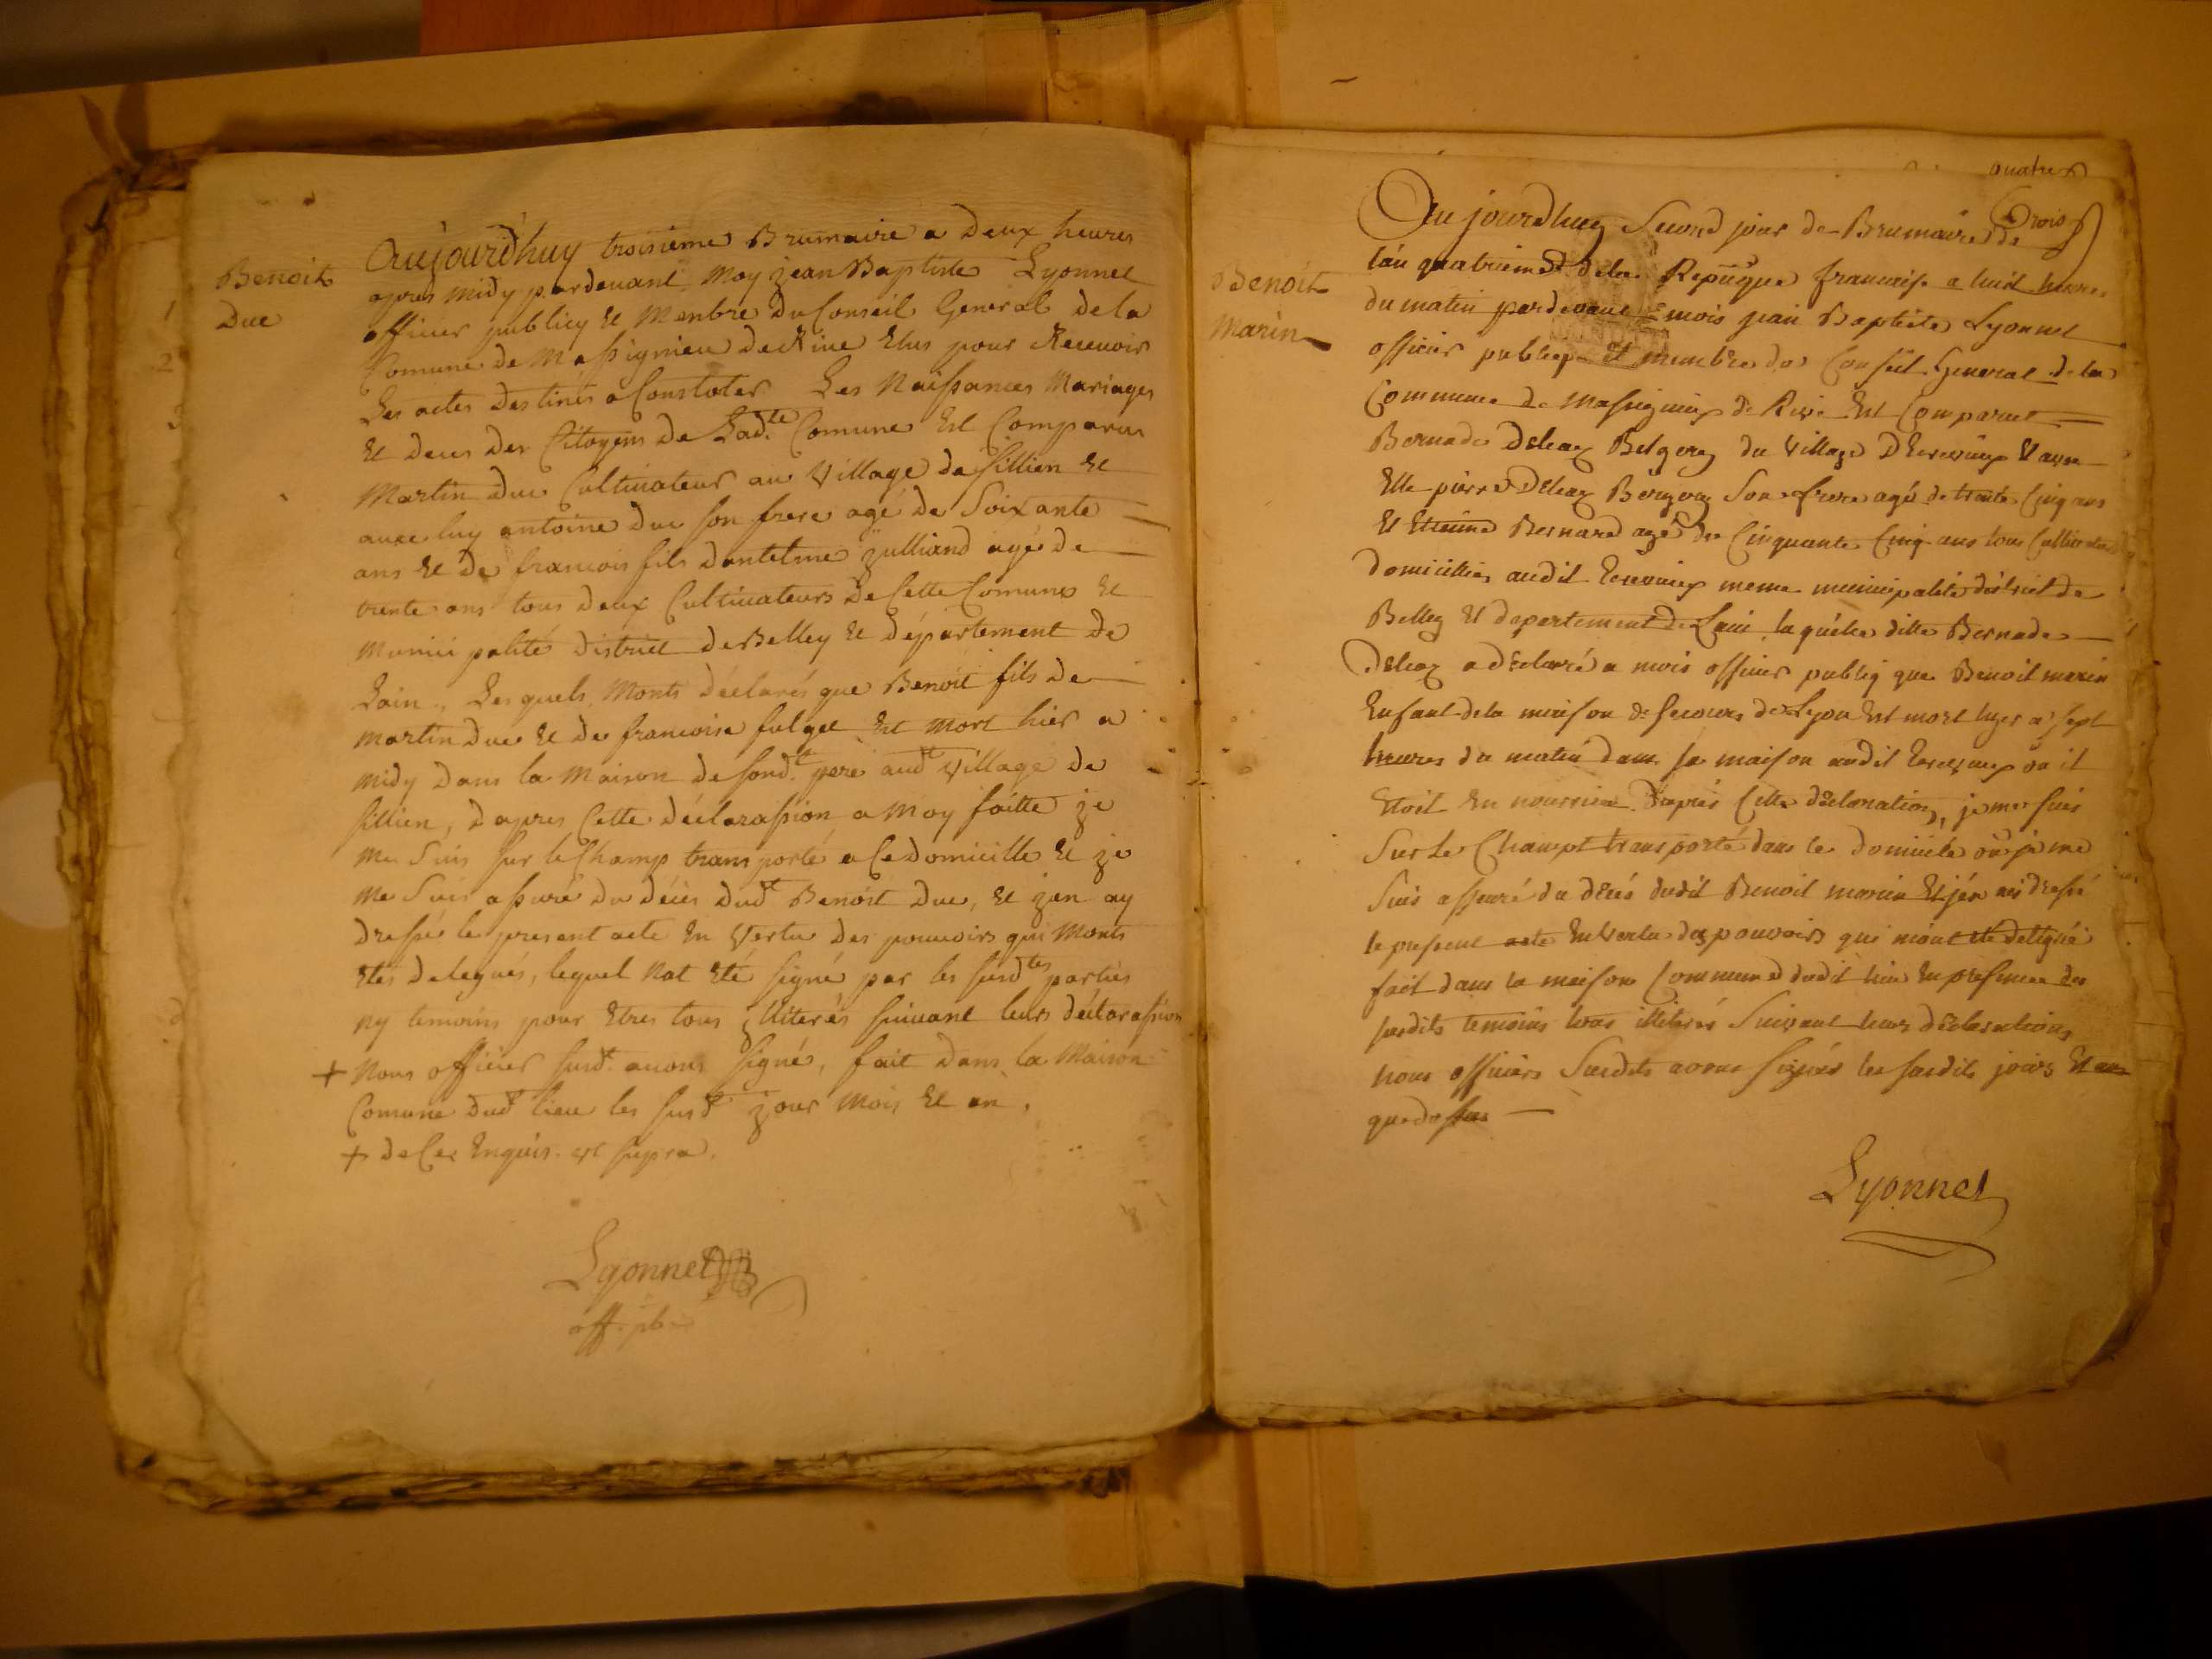 Benoit
Duc
Aujourd'huy troisieme Brumaire a Deux heures
apres midy pardevant Moy Jean Baptiste Lyonnet
officier publicq et Menbre Du Conseil General de la
Comune de Massignieu de Rive Elus pour Recevoir
Les actes Destinés a Constater Les Naissances Mariages
Et deces des Citoyens De Ladte Comune Est Comparus
Martin Duc Cultivateur au Village de sillien Et
avec luy antoine Duc son frere agé de Soixante
ans Et De francois fils Dantelme Julliand agé de
trente ans tous deux Cultivateurs De Cette Comune Et
Municipalité District de Belley Et département De
Lain, Lesquels Monts déclarés que Benoit fils de
Martin Duc Et De francoise Est Mort hier a
midy Dans la Maison de sondt pere audt Village de
sillien, Dapres Cette déclarassion a Moy faitte je
Me Suis sur le Champ transporté a Ce domicille Et je
Me Suis assuré Du déces dudt Benoit Duc, Et jen ay
Dressé le present acte En Vertu Des pouvoirs qui Monts
Etés delegués, lequel Nat Eté signé par les susdtes parties
Ny temoins pour Etres tous illiterés suivant leurs déclarassion
+ Nous officier susdt avons signé, fait Dans la Maison
Comune dudt lieu les susdt jour Mois Et an.
+ de Ce Enquis ut supra.
Lyonnet
off. pb.
quatre
trois
Benoit
Marin
Aujourdhuy Second jour de Brumaire de
lan quatrieme dela Repuque francaise a huit heures
du matin pardevant mois jean Baptiste Lyonnet
officier publicq et membre du Conseil General de la
Commune de Massignieux de Rive Est Comparut
Bernade Deleaz Belgeray du Village DEcrivieux Et avec
Elle pierre Deleaz son frere agé de trante Cinq ans
Et Etienne Bernard agé de Cinquante Cinq ans tous Cultivateurs
Domicilliés audit meme municipalité district de
Belley Et departement de Lain laquelle ditte Bernade
Deleaz a declaré a mois officier publiq que Benoit marin
Enfant dela maison de secours de Lyon Est mort hyer a sept
heures du matin dans sa maison audit ou il
Etoit En nourrice Dapres Cette déclaration, je me suis
Sur le Champt transporté dans le domicile ou je me
Suis asseuré du décés dudit Benoit marin Et jén ai dressé
le present acte En Vertu des pouvoirs qui mónt été deligué
fait dans la maison Commune dudit lieu En presence des
susdits temoins tous illiterés Suivant leur déclarations
nous officiers Susdits avons signés les susdits jours Et an
que dessus
Lyonnet